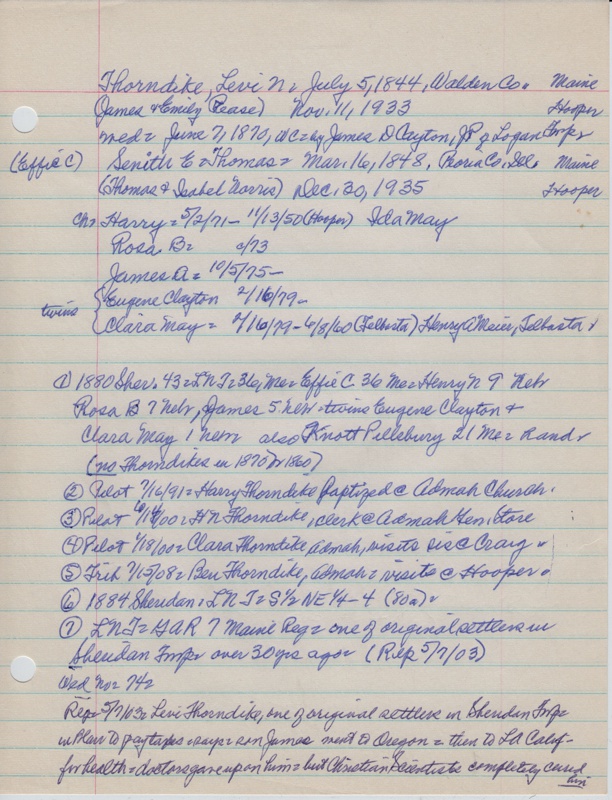 Thorndike, Levi N = July 5, 1844, Walden Co. Maine
(James & Emily Pease) Nov. 11, 1933 Hooper
wed = June 7, 1870, WC = by James D Clayton, JP of Logan Twp
(Effie C) Senith E = Thomas = Mar. 16, 1848, Peoria Co. Ill. Maine
(Thomas & Isabel Norris) Dec. 30, 1935 Hooper
ch = Harry = 5/2/71 - 11/13/50 (Hooper) Ida May
Rosa B = c/73
James A = 10/5/75 -
twins { Eugene Clayton 2/16/79 -
Clara May = 2/16/79 - 6/8/60 (Telbasta) Henry A Meier, Telbasta
① 1880 Sher. 43 = LNT = 36, Me = Effie C 36 Me = Henry N 9 Nebr
Rosa B 7 Nebr, James 5 Nebr = twins Eugene Clayton &
Clara May 1 Nebr also Knott Pillsbury 21 Me = Rand
(no Thorndikes in 1870 or 1860)
② Pilot 7/16/91 = Harry Thorndike baptized @ Admah Church.
③ Pilot 6/14/00 = HN Thorndike, clerk @ Admah Gen. Store
④ Pilot 1/18/00 = Clara Thorndike Admah, visits sis @ Craig
⑤ Trib 7/15/08 = Ben Thorndike, Admah = visits @ Hooper
⑥ 1884 Sheridan: LNT = S½ NE¼ - 4 (80a) =
⑦ LNT = GAR 7 Maine Reg = one of original settlers in
Sheridan Twp over 30 yrs ago = (Rep 5/7/03)
Wed No = 742
Rep = 5/7/03 = Levi Thorndike, one of original settlers in Sheridan Twp =
in Blair to pay taxes = says = son James went to Oregon = then to LA Calif -
for health = doctors gave up on him = but Christian Scientists completely cured
him